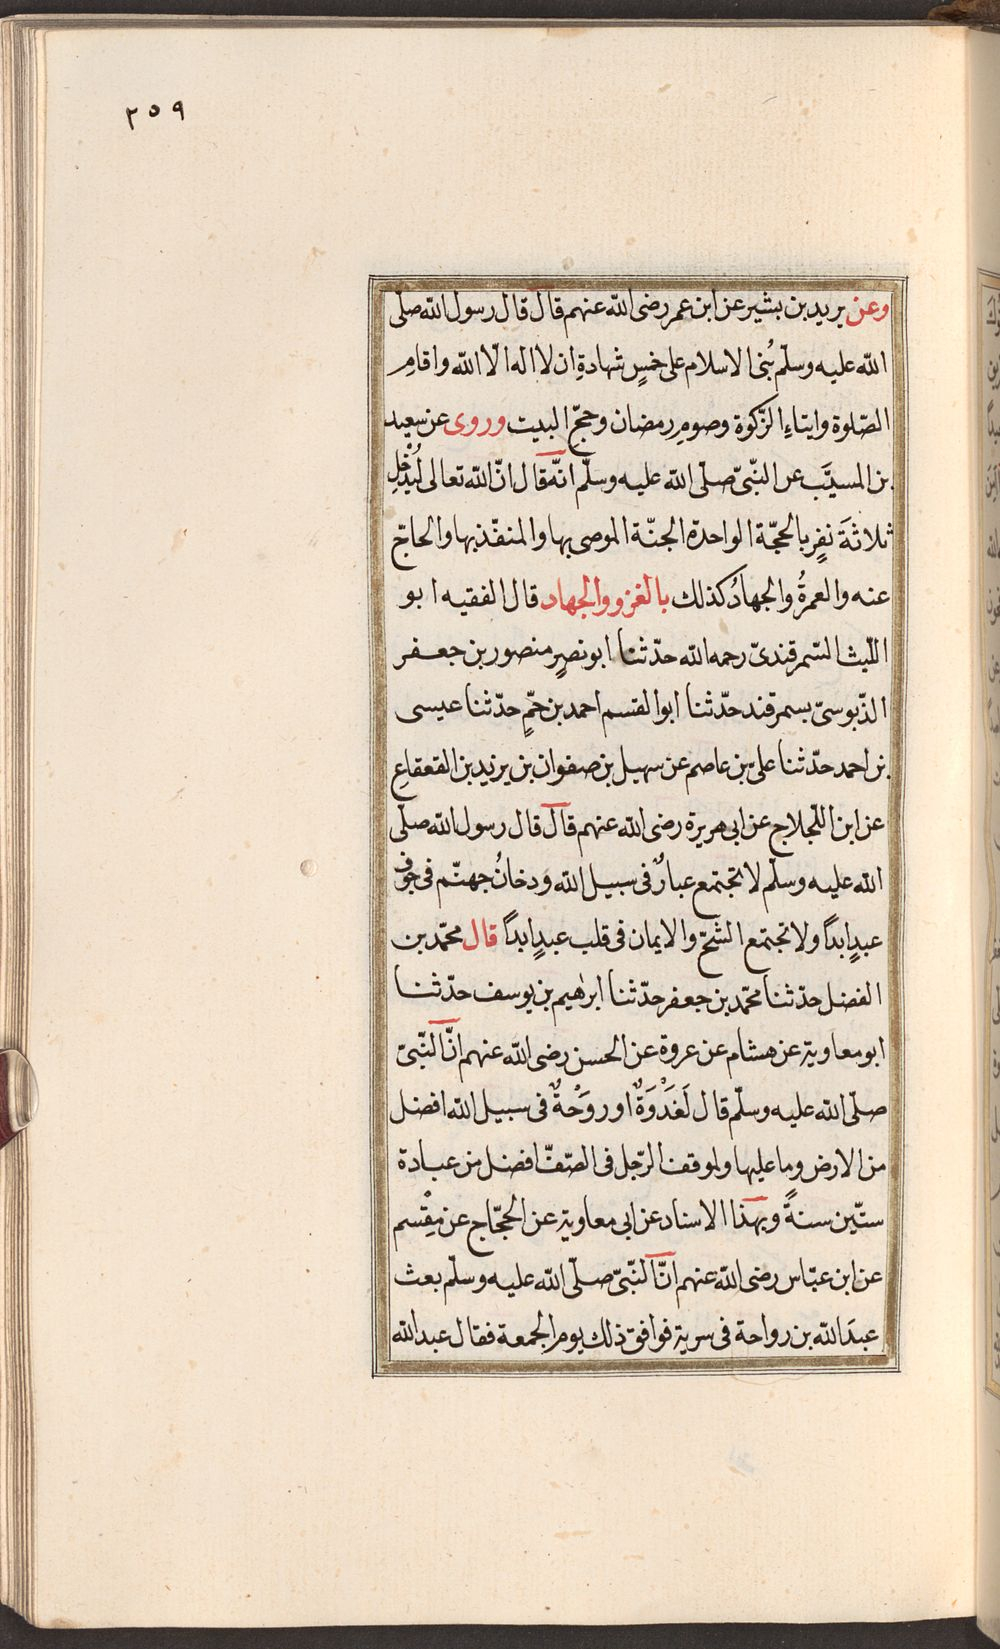 ٢٥٩
وعن بريد بن بشير عن ابن عمر رضى الله عنهم قال قال رسول الله صلّى
الله عليه وسلّم بُنى الاسلام على خمسٍ شهادةِ ان لا اله الّا الله واقامِ
الصّلوة وايتاءِ الزّكوة وصومِ رمضان وحجّ البيت وروى عن سعيد
بن المسيَّب عن النّبىّ صلّى الله عليه وسلّم انّه قال انّ الله تعالى لَيُدْخِل
ثلاثةَ نفرٍ بالحجّة الواحدة الجنّة الموصى بها والمنفّذ بها والحاجّ
عنه والعمرةُ والجهادُ كذلك بالغزو والجهاد قال الفقيه ابو
اللّيث السّمرقندىّ رحمه الله حدّثنا ابو نصرٍ منصور بن جعفر
الدّبوسىّ بسمرقند حدّثنا ابو القسم احمد بن حمٍّ حدّثنا عيسى
بن احمد حدّثنا علىّ بن عاصم عن سهيل بن صفوان بن يزيد بن القعقاعِ
عن ابن اللّجلاج عن ابى هريرة رضى الله عنهم قال قال رسول الله صلّى
الله عليه وسلّم لا تجتمع غبارٌ فى سبيل الله ودخانُ جهنّم فى جوف
عبدٍ ابدًا ولا تجتمع الشحّ والايمان فى قلب عبدٍ ابدًا قال محمّد بن
الفضل حدّثنا محمّد بن جعفر حدّثنا ابرٰهيم بن يوسف حدّثنا
ابو معاوية عن هشام عن عروة عن الحسن رضى الله عنهم انّ النّبىّ
صلّى الله عليه وسلّم قال لَغَدْوَةٌ او رَوْحةٌ فى سبيل الله افضل
من الارض وما عليها ولموقف الرّجل فى الصّفّ افضل من عبادة
ستّين سنةً وبهذا الاسناد عن ابى معاوية عن الحجّاج عن مِقْسم
عن ابن عبّاس رضى الله عنهم انّ النّبىّ صلّى الله عليه وسلّم بعث
عبدَ الله بن رواحة فى سرية فوافق ذلك يوم الجمعة فقال عبد الله